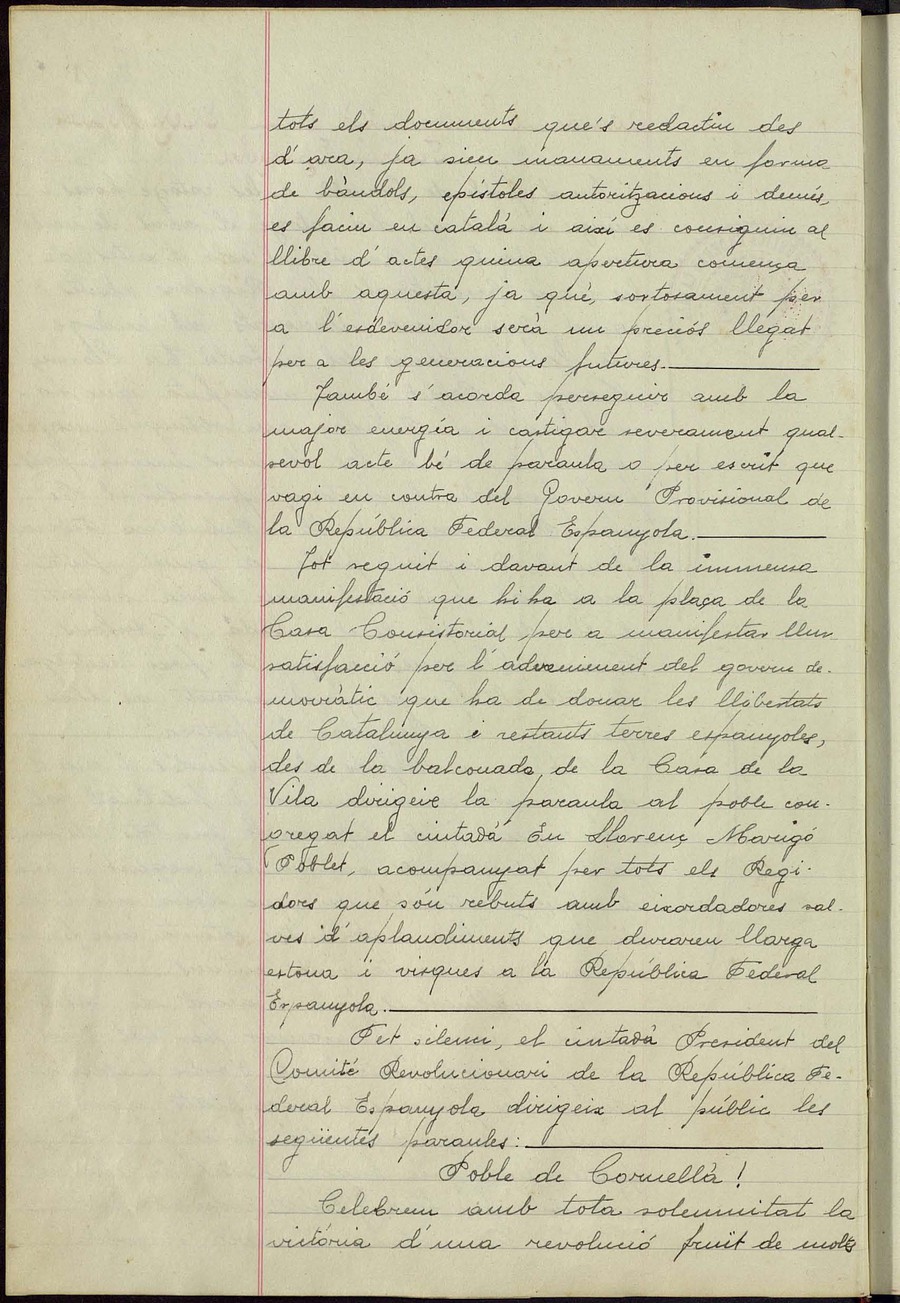 tots els documents que's redactin des
d'ara, ja sien manaments en forma
de bàndols, epístoles autoritzacions i demés,
es facin en català i així es consignin al
llibre d'actes quina apertura comença
amb aquesta, ja què, sortosament per
a l'esdevenidor serà un preciós llegat
per a les generacions futures.
També s'acorda perseguir amb la
major energía i castigar severament qual-
sevol acte bé de paraula o per escrit que
vagi en contra del Govern Provisional de
la República Federal Espanyola.
Tot seguit i davant de la immensa
manifestació que hi ha a la plaça de la
Casa Consistorial per a manifestar llur
satisfacció per l'adveniment del govern de-
mocràtic que ha de donar les llibertats
de Catalunya i restants terres espanyoles,
des de la balconada, de la Casa de la
Vila dirigeix la paraula al poble con-
gregat el ciutadà En Llorenç Marigó
Poblet, acompanyat per tots els Regi-
dors que són rebuts amb eixordadores sal-
ves d'aplaudiments que duraren llarga
estona i visques a la República Federal
Espanyola.
Fet silenci, el ciutadà President del
Comité Revolucionari de la República Fe-
deral Espanyola dirigeix al públic les
següentes paraules:
Poble de Cornellà!
Celebrem amb tota solemnitat la
victória d'una revolució fruït de molts